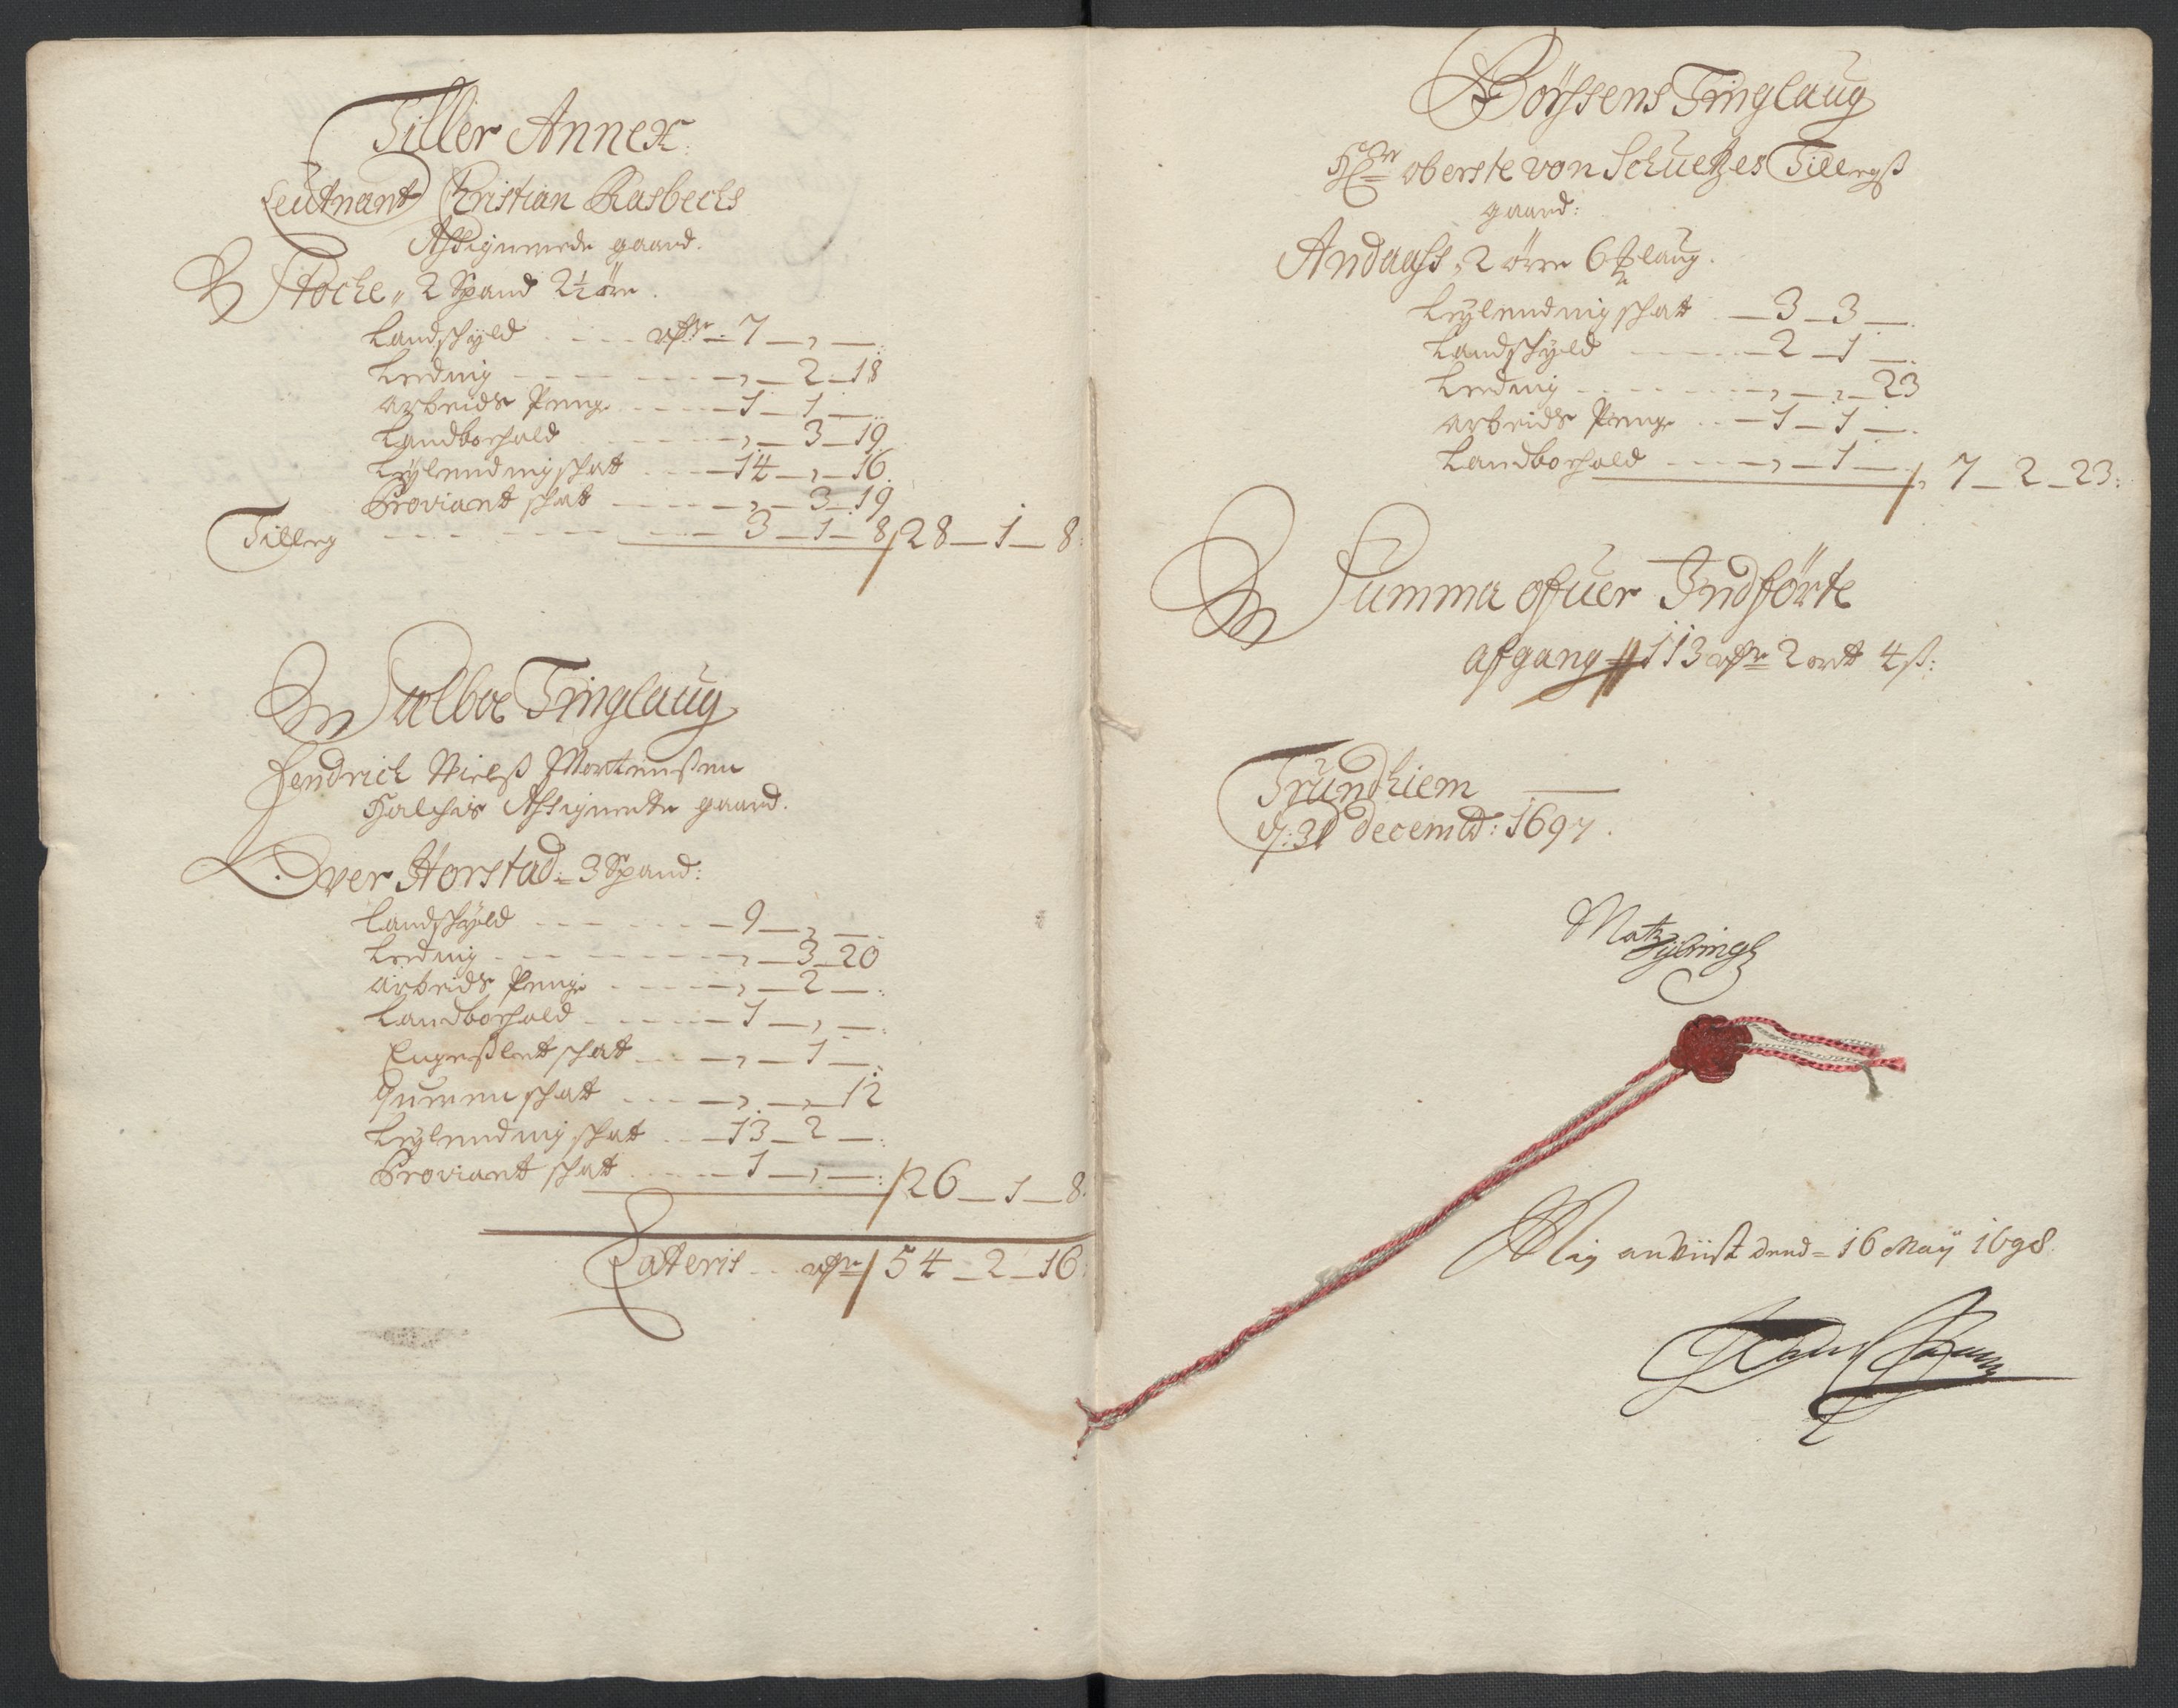 Tiller Annex:
Leutnant Christian Rasbechs
Assignerede gaard.
Stoche, 2 Spand 2½ øre.
Landschyld - - - - rdr - 7 - , - :
Leding - - - - - , - 2 - 18
Arbeids Penge - - - - 1 - 1 - :
Landbohold - - - - , - 3 - 19
Leylending schat - - - 14 - , - 16.
Proviant schat - - - - , - 3 - 19
Tilleg - - - - - 3 - 1 - 8 / 28 - 1 - 8:
Sælboe Tinglaug
Fendrich Nielß Mortensen
Halchis Assignerte gaard.
Over Horstad = 3 Spand:
Landschyld - - - - - 9 - , - .
Leding - - - - - , - 3 - 20
Arbeids Penge - - - - , - 2 - :
Landbohold - - - - 1 - , - :
Engeßlet schat - - - , - 1 - :
Quernschat - - - , - , - 12
Leylending schat - - 13 - 2 - :
Proviant schat - - - - 1 - , - : / 26 - 1 - 8.
Lateris - - rdr / 54 - 2 - 16:
Børssens Tinglaug
Hr oberste von Schuetzes Tillegß
gaard:
Andaass, 2 øre 6 ½ laug.
Leylending schat - 3 - 3 - .
Landschyld - - - - 2 - 1 - .
Leding - - - - , - , - 23
Arbeids Penge - - 1 - 1 - .
Landbohold - - - - , - 1 - . / 7 - 2 - 23:
Summa ofuer Indførte
afgang # 113 rdr 2 ort 4 ß:
Trundhiem
d: 31 decembr: 1697.
Mig anviist dend = 16 Maij 1698